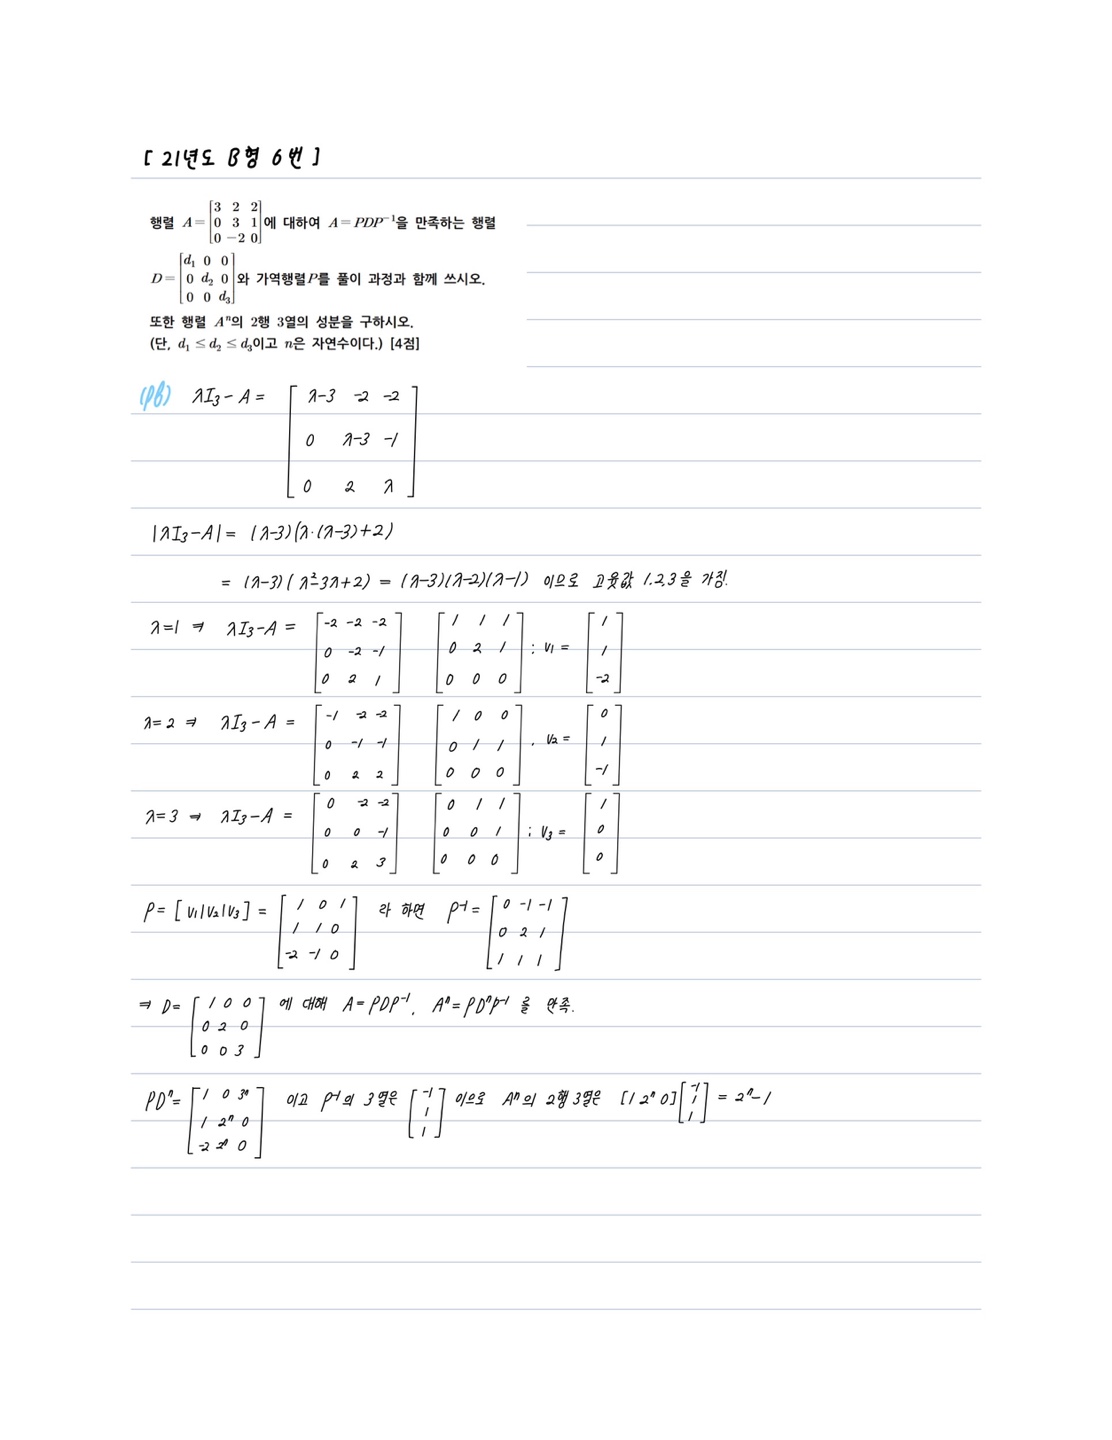 [ 21년도 B형 6번 ]
행렬 A = [3 2 2; 0 3 1; 0 -2 0]에 대하여 A = PDP⁻¹을 만족하는 행렬
D = [d₁ 0 0; 0 d₂ 0; 0 0 d₃]와 가역행렬P를 풀이 과정과 함께 쓰시오.
또한 행렬 Aⁿ의 2행 3열의 성분을 구하시오.
(단, d₁ ≤ d₂ ≤ d₃이고 n은 자연수이다.) [4점]
(pf) λI₃-A = [λ-3 -2 -2; 0 λ-3 -1; 0 2 λ]
|λI₃-A| = (λ-3)(λ·(λ-3)+2)
= (λ-3)(λ²-3λ+2) = (λ-3)(λ-2)(λ-1) 이므로 고윳값 1,2,3을 가짐.
λ=1 ⇒ λI₃-A = [-2 -2 -2; 0 -2 -1; 0 2 1] [1 1 1; 0 2 1; 0 0 0] ; v₁ = [1; 1; -2]
λ=2 ⇒ λI₃-A = [-1 -2 -2; 0 -1 -1; 0 2 2] [1 0 0; 0 1 1; 0 0 0] . v₂ = [0; 1; -1]
λ=3 ⇒ λI₃-A = [0 -2 -2; 0 0 -1; 0 2 3] [0 1 1; 0 0 1; 0 0 0] ; v₃ = [1; 0; 0]
P = [v₁|v₂|v₃] = [1 0 1; 1 1 0; -2 -1 0] 라 하면 P⁻¹ = [0 -1 -1; 0 2 1; 1 1 1]
⇒ D = [1 0 0; 0 2 0; 0 0 3] 에 대해 A = PDP⁻¹, Aⁿ = PDⁿP⁻¹ 를 만족.
PDⁿ = [1 0 3ⁿ; 1 2ⁿ 0; -2 -2ⁿ 0] 이고 P⁻¹의 3열은 [-1; 1; 1] 이므로 Aⁿ의 2행 3열은 [1 2ⁿ 0][-1; 1; 1] = 2ⁿ-1